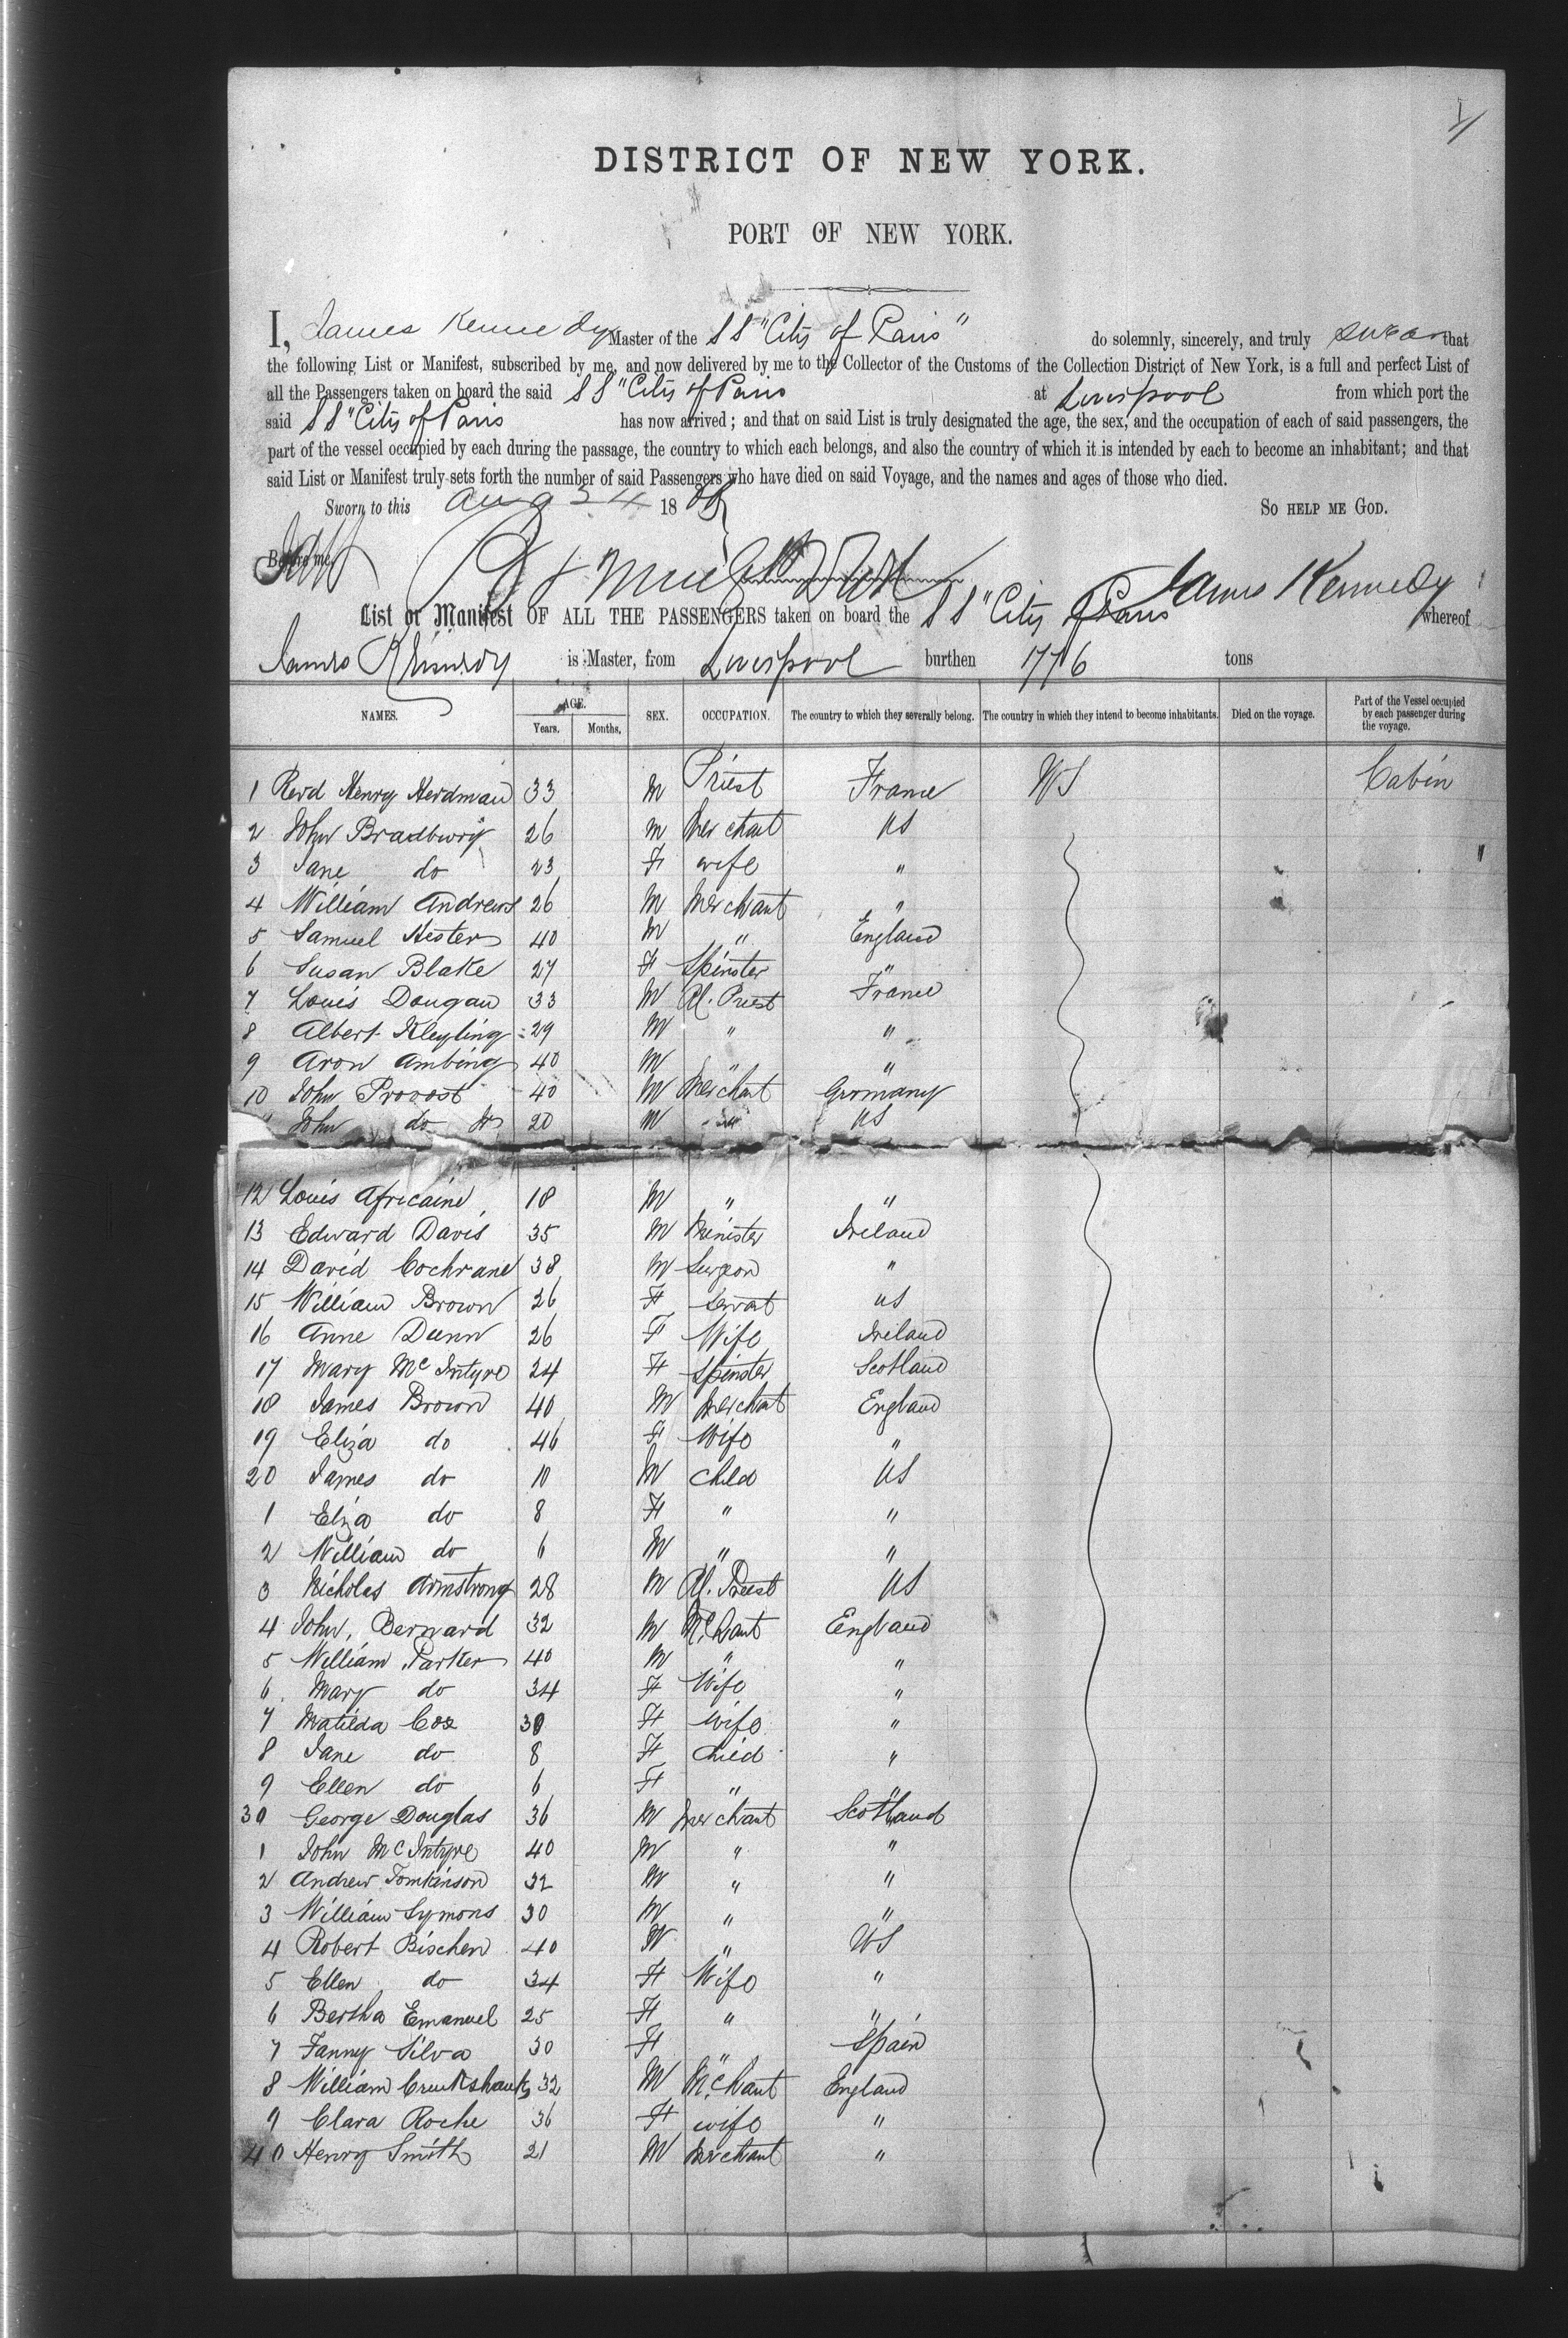 DISTRICT OF NEW YORK.
PORT OF NEW YORK.
I, James Kennedy Master of the SS "City of Paris" do solemnly, sincerely, and truly swear that
the following List or Manifest, subscribed by me, and now delivered by me to the Collector of the Customs of the Collection District of New York, is a full and perfect List of
all the Passengers taken on board the said SS "City of Paris at Liverpool from which port the
said SS "City of Paris has now arrived; and that on said List is truly designated the age, the sex, and the occupation of each of said passengers, the
part of the vessel occupied by each during the passage, the country to which each belongs, and also the country of which it is intended by each to become an inhabitant; and that
said List or Manifest truly sets forth the number of said Passengers who have died on said Voyage, and the names and ages of those who died.
Sworn to this Aug 18 SO HELP ME GOD.
Before me, James Kennedy
List or Manifest OF ALL THE PASSENGERS taken on board the SS "City of Paris whereof
James Kennedy is Master, from Liverpool burthen 1776 tons
NAMES. AGE. Years. Months. SEX. OCCUPATION. The country to which they severally belong. The country in which they intend to become inhabitants. Died on the voyage. Part of the Vessel occupied by each passenger during the voyage.
1 Revd Henry Herdman 33 M Priest France US Cabin
2 John Bradbury 26 M Merchant US "
3 Jane do 23 F wife "
4 William Andrews 26 M Merchant "
5 Samuel Hester 40 M " England
6 Susan Blake 27 F Spinster "
7 Louis Dougan 33 M Priest France
8 Albert Kleyling 29 M " "
9 Aron Ambing 40 M " "
10 John Provost 40 M Merchant Germany
" John do Jr 20 M " US
12 Louis Africaine 18 M " "
13 Edward Davis 35 M Minister Ireland
14 David Cochrane 38 M Surgeon "
15 William Brown 26 F Servant US
16 Anne Dunn 26 F Wife Ireland
17 Mary McIntyre 24 F Spinster Scotland
18 James Brown 40 M Merchant England
19 Eliza do 46 F Wife "
20 James do 10 M Child US
1 Eliza do 8 F " "
2 William do 6 M " "
3 Nicholas Armstrong 28 M Priest US
4 John Bernard 32 M Mchant England
5 William Parker 40 M " "
6 Mary do 34 F Wife "
7 Matilda Cox 30 F Wife "
8 Jane do 8 F Child "
9 Ellen do 6 F " "
30 George Douglas 36 M Merchant Scotland
1 John McIntyre 40 M " "
2 Andrew Tomkinson 32 M " "
3 William Symons 30 M " "
4 Robert Bischen 40 M " US
5 Ellen do 34 F Wife "
6 Bertha Emanuel 25 F " "
7 Fanny Silva 30 F " Spain
8 William Cruikshanks 32 M Mchant England
9 Clara Roche 36 F wife "
40 Henry Smith 21 M Merchant "